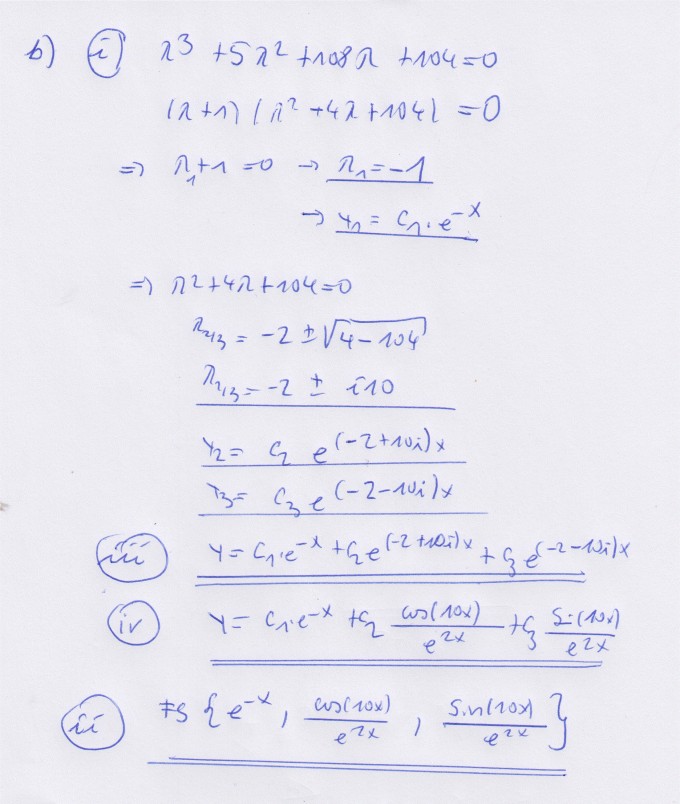 b) i) λ³ + 5λ² + 108λ + 104 = 0
(λ+1) (λ² + 4λ + 104) = 0
⇒ λ₁ + 1 = 0 → λ₁ = -1
→ y₁ = C₁·e^(-x)
⇒ λ² + 4λ + 104 = 0
λ₂/₃ = -2 ± √(4-104)
λ₂/₃ = -2 ± i10
y₂ = C₂ e^((-2+10i)x)
y₃ = C₃ e^((-2-10i)x)
iii) y = C₁·e^(-x) + C₂ e^((-2+10i)x) + C₃ e^((-2-10i)x)
iv) y = C₁·e^(-x) + C₂ cos(10x)/e^(2x) + C₃ Si(10x)/e^(2x)
ii) FS {e^(-x), cos(10x)/e^(2x), Sin(10x)/e^(2x)}